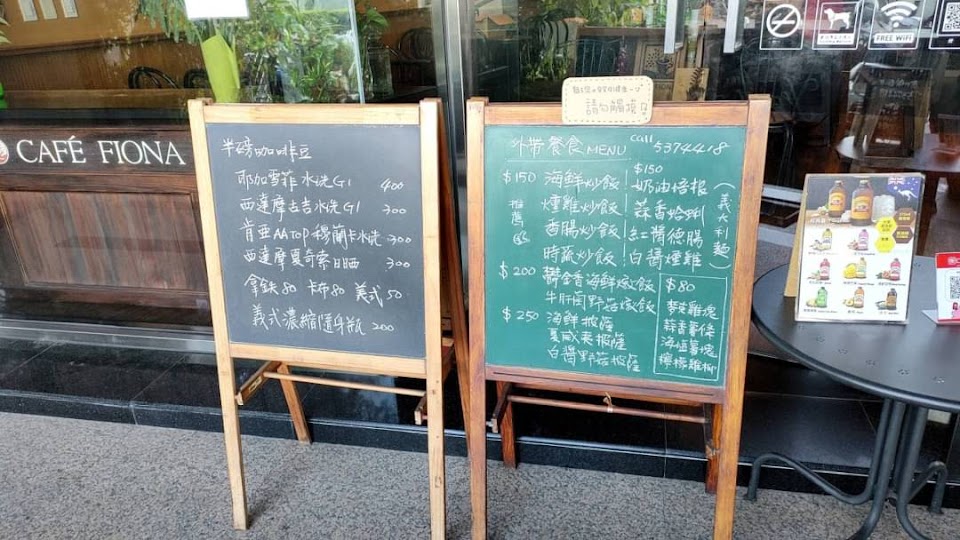 CAFÉ FIONA
半磅咖啡豆
耶加雪菲水洗G1 400
西達摩古吉水洗G1 300
肯亞AATOP 穆蘭卡水洗 300
西達摩夏奇索日晒 300
拿鉄80 卡布80 美式50
義式濃縮隨身瓶 200
請勿觸摸
外帶餐食MENU call 5374418
$150 海鮮炒飯
推薦 燻雞炒飯
香腸炒飯
時蔬炒飯
$150
奶油培根
蒜香蛤蜊
紅醬德腸
白醬燻雞
(義大利麵)
$200 鬱金香海鮮燉飯
牛肝菌野菇燉飯
$250 海鮮披薩
夏威夷披薩
白醬野菇披薩
$80
麥克雞塊
蒜香薯條
海植薯塊
檸檬雞柳
FREE WiFi